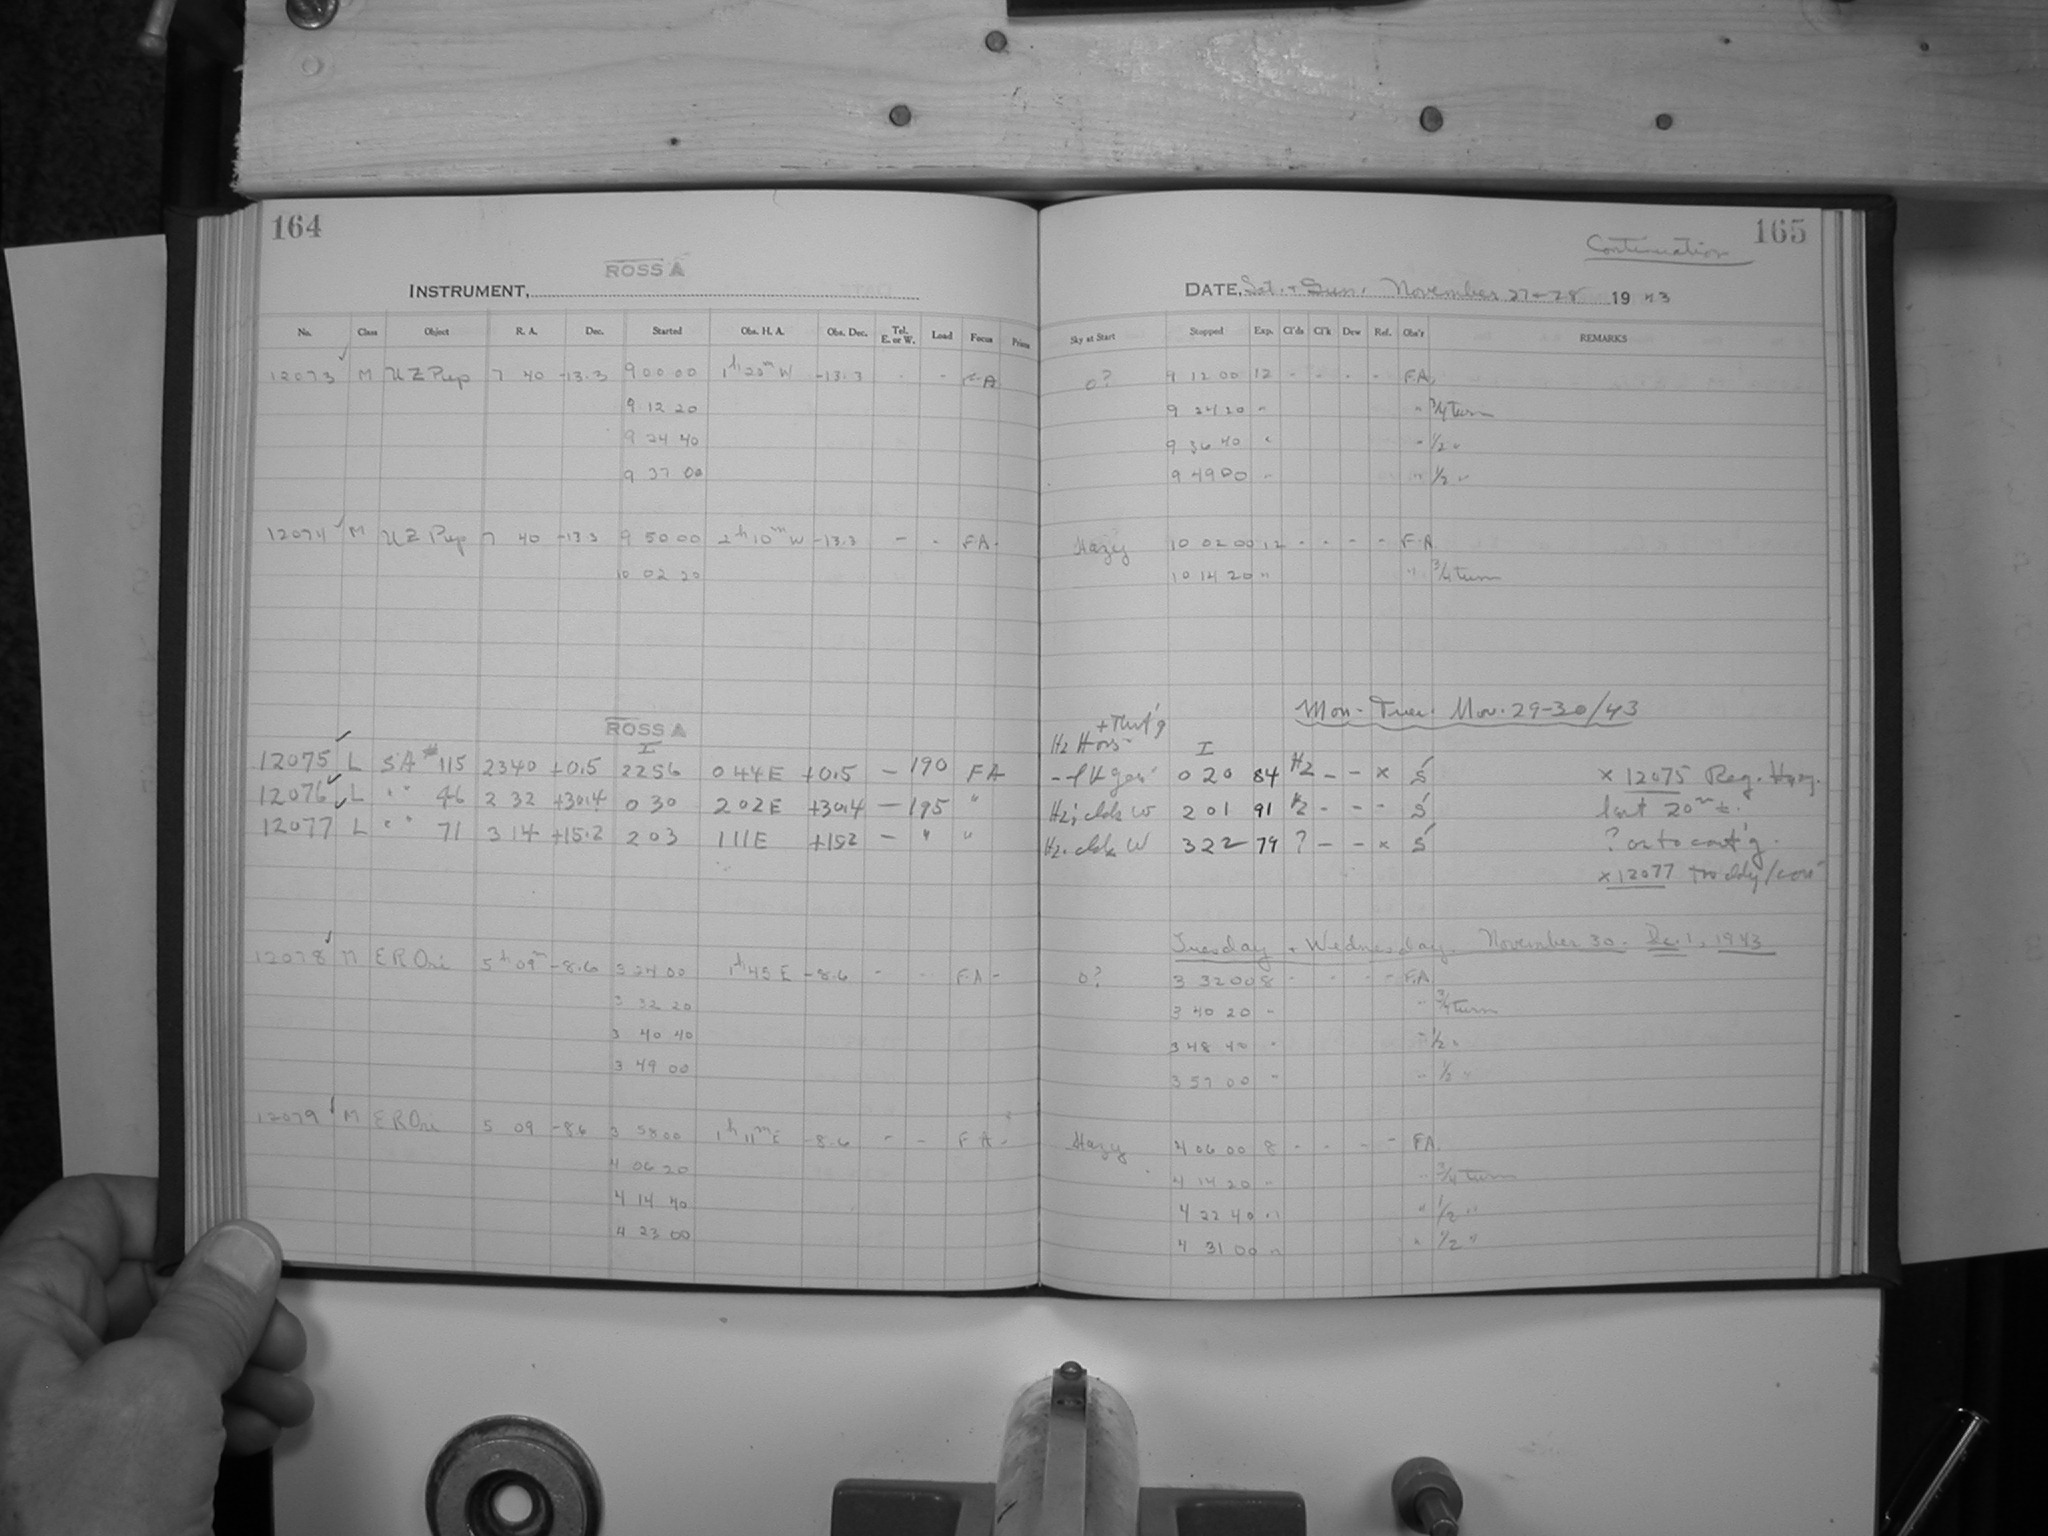 164
ROSS A
INSTRUMENT,
No. Class Object R. A. Dec. Started Obs. H. A. Obs. Dec. Tel. E. or W. Load Focus Prism
12073 M UZ Pup 7 40 -13.3 9 00 00 1h 20m W -13.3 - - FA
9 12 20
9 24 40
9 37 00
12074 M UZ Pup 7 40 -13.3 9 50 00 2h 10m W -13.3 - - FA-
10 02 20
ROSS A
I
12075 L SA #115 23 40 +0.5 22 56 0 44 E +0.5 - 190 FA
12076 L " " 46 2 32 +30.4 0 30 2 02 E +30.4 - 195 "
12077 L " " 71 3 14 +15.2 2 03 1 11 E +15.2 - " "
12078 M ER Ori 5h 09m -8.6 3 24 00 1h 45 E -8.6 - - FA-
3 32 20
3 40 40
3 49 00
12079 M ER Ori 5 09 -8.6 3 58 00 1h 11m E -8.6 - - FA-
4 06 20
4 14 40
4 23 00
165
Continuation
DATE, Sat. + Sun. November 27-28 19 43
Sky at Start Stopped Exp. Cl'ds Cl'k Dew Ref. Obs'r REMARKS
0? 9 12 00 12 - - - - F.A.
9 24 20 " " 3/4 turn
9 36 40 " " 1/2 "
9 49 00 " " 1/2 "
Hazy 10 02 00 12 - - - - F.A.
10 14 20 " " 3/4 turn
Mon- Tue. Nov. 29-30/43
I
0 20 84 Hz - - x S x 12075 Reg.
Hz; clds W 2 01 91 Hz - - - S last 20m
Hz. clds W 3 22 79 ? - - x S ?
x 12077
Tuesday + Wednesday. November 30. Dec. 1, 1943
0? 3 32 00 8 - - - - F.A.
3 40 20 " " 3/4 turn
3 48 40 " " 1/2 "
3 57 00 " " 1/2 "
Hazy 4 06 00 8 - - - - FA.
4 14 20 " " 3/4 turn
4 22 40 " " 1/2 "
4 31 00 " " 1/2 "